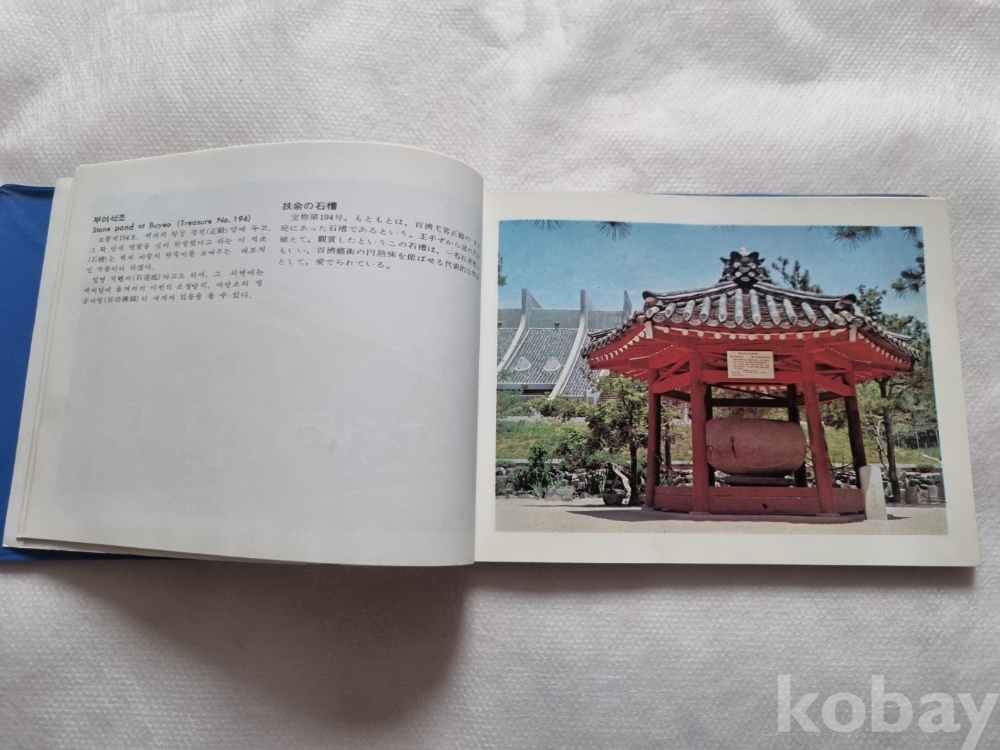 부여석조
Stone pond at Buyeo (Treasure No. 194)
보물제194호. 백제의 왕궁 정전(正殿)앞에 두고,
그 확 안에 연꽃을 심어 완상했다고 하는 이 석조
(石槽)는 백제 예술의 원숙미를 보여주는 대표적
인 작품이라 하겠다.
일명 석련지(石蓮池)라고도 하며, 그 외면에는
이전의 소정방리,
이 새겨져 있음을 볼 수 있다.
扶余の石槽
宝物第194号。もともとは、百済王宮正殿の
庭にあった石槽であるという。王手ずから蓮の
植えて、観賞したというこの石槽は、一名石蓮
もいい、百済藝術の円熟味を偲ばせる代表的な作
として、愛でられている。
kobay